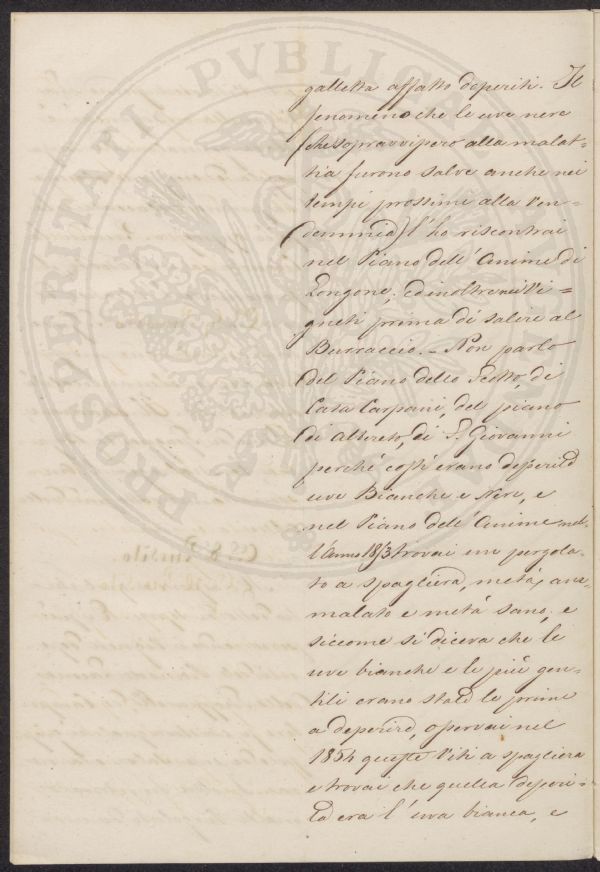 PROSPERITATI PVBLICAE
galletta affatto deperiti. Il
fenomeno che le uve nere
(che sopravvissero alla malat=
tia furono salve anche nei
tempi prossimi alla Ven=
demmia) l'ho riscontrai
nel Piano dell'Anime di
Longone; ed inoltre nei Vi=
gneti prima di salire al
Burraccio. – Non parlo
del Piano dello Scotto, di
Casa Carpani, del piano
di altoreto, di S. Giovanni
perché costì erano deperite
uve Bianche e Nere, e
nel Piano dell'Anime nel=
l'Anno 1853 trovai un pergola=
to a spagliera, metà, am=
malato e metà sano; e
siccome si diceva che le
uve bianche e le più gen=
tili erano state le prime
a deperire, osservai nel
1854 queste Viti a spagliera
e trovai che quella deperi=
ta era l'uva bianca, e